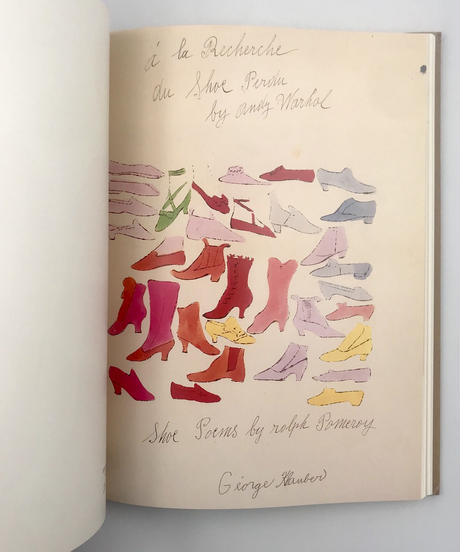 á la Recherche
du Shoe Perdu
by andy Warhol
Shoe Poems by ralph Pomeroy
George Klauber